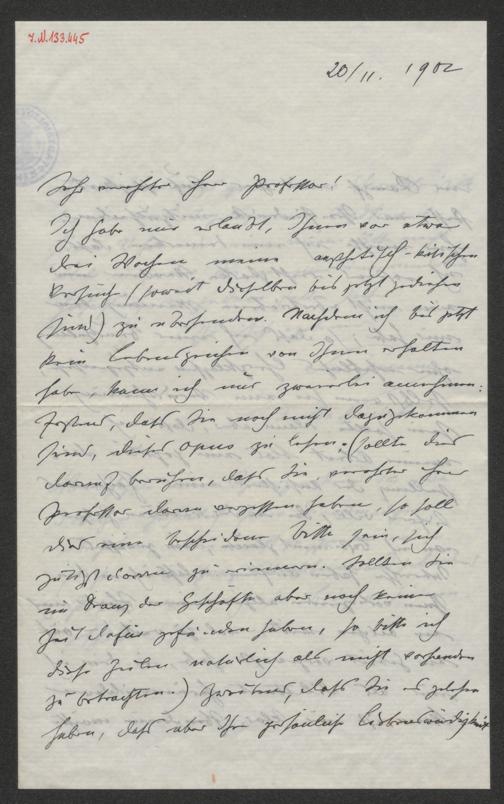 I.N.133.445
20/11. 1902
Sehr verehrter Herr Professor!
Ich habe mir erlaubt, Ihnen vor etwa
drei Wochen meine aesthetisch-kritischen
Versuche (soweit dieselben bis jetzt gediehen
sind) zu übersenden. Nachdem ich bis jetzt
kein Lebenszeichen von Ihnen erhalten
habe, kann ich nur zweierlei annehmen:
Erstens, dass Sie noch nicht dazugekommen
sind, dieses Opus zu lesen. (Sollte dies
darauf beruhen, dass Sie verehrter Herr
Professor daran vergessen haben, so soll
dies eine bescheidene Bitte sein, sich
gütigst daran zu erinnern. Sollten Sie
im Drang der Geschäfte aber noch keine
Zeit dafür gefunden haben, so bitte ich
diese Zeilen natürlich als nicht vorhanden
zu betrachten.) Zweitens, dass Sie es gelesen
haben, dass aber Ihre persönliche Liebenswürdigkeit